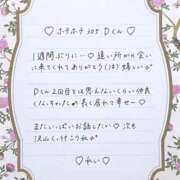 ♡ ホテホテ 305 Dくん ♡
1週間ぶりに…♡ 遠い所が会い
に来てくれてありがとう(})嬉しい♂
Dくん2回目とは思えないくらい仲良
くなっちゃったの 長く居れて幸せ〜
♡
またいっぱいお話したい♡ 次も
沢山イ 付こうね♂
♡ れい ♡